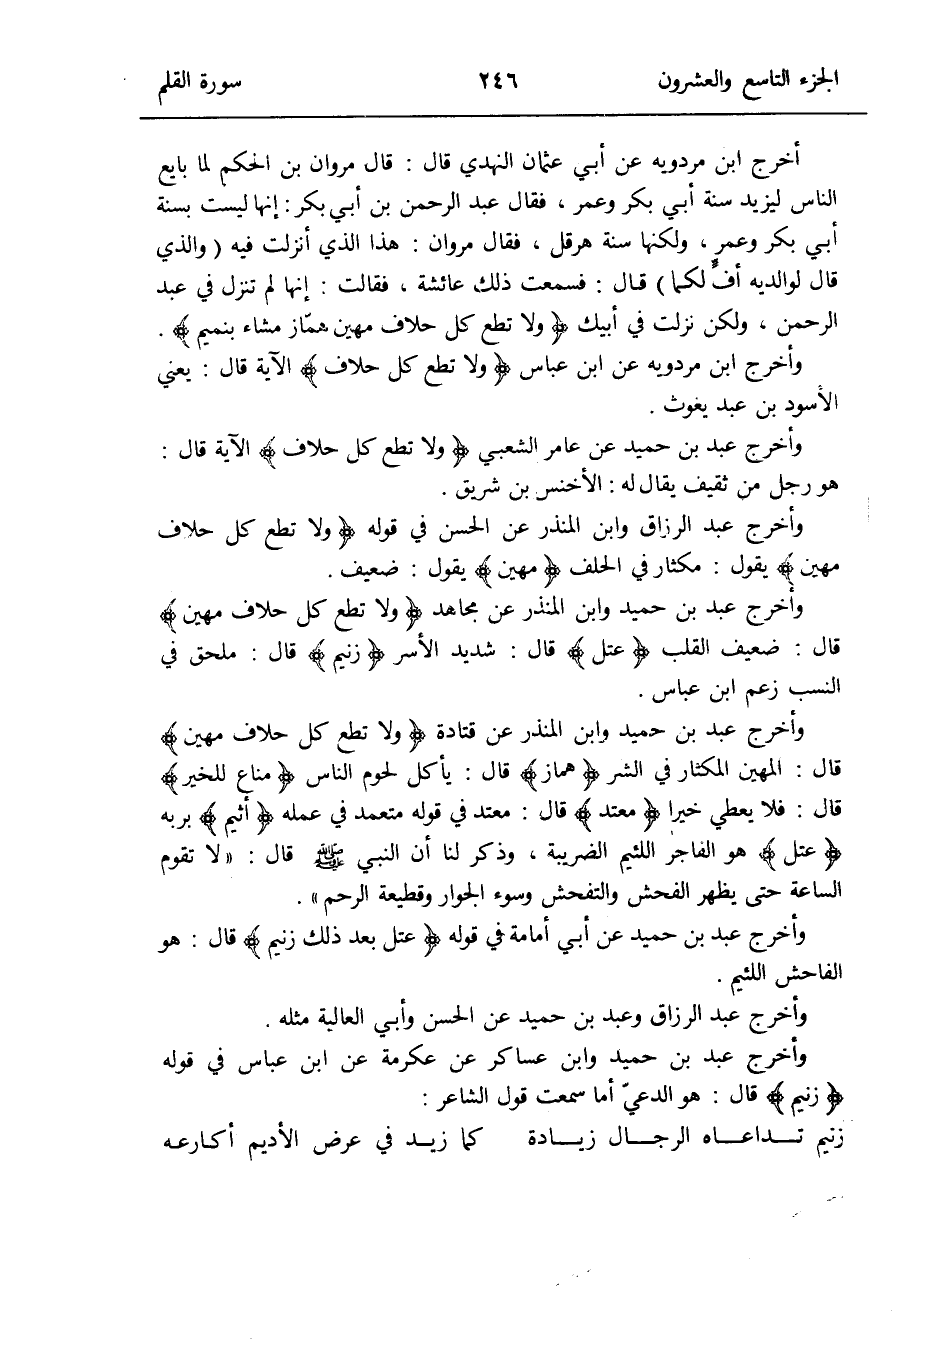 الجزء التاسع والعشرون ٢٤٦ سورة القلم
أخرج ابن مردويه عن أبي عثمان النهدي قال : قال مروان بن الحكم لما بايع
الناس ليزيد سنة أبي بكر وعمر ، فقال عبد الرحمن بن أبي بكر : إنها ليست بسنة
أبي بكر وعمر ، ولكنها سنة هرقل ، فقال مروان : هذا الذي أنزلت فيه ( والذي
قال لوالديه أفٍّ لكما ) قال : فسمعت ذلك عائشة ، فقالت : إنها لم تنزل في عبد
الرحمن ، ولكن نزلت في أبيك ﴿ ولا تطع كل حلاف مهين همّاز مشاء بنميم ﴾ .
وأخرج ابن مردويه عن ابن عباس ﴿ ولا تطع كل حلاف ﴾ الآية قال : يعني
الأسود بن عبد يغوث .
وأخرج عبد بن حميد عن عامر الشعبي ﴿ ولا تطع كل حلاف ﴾ الآية قال :
هو رجل من ثقيف يقال له : الأخنس بن شريق .
وأخرج عبد الرزاق وابن المنذر عن الحسن في قوله ﴿ ولا تطع كل حلاف
مهين ﴾ يقول : مكثار في الحلف ﴿ مهين ﴾ يقول : ضعيف .
وأخرج عبد بن حميد وابن المنذر عن مجاهد ﴿ ولا تطع كل حلاف مهين ﴾
قال : ضعيف القلب ﴿ عتل ﴾ قال : شديد الأسر ﴿ زنيم ﴾ قال : ملحق في
النسب زعم ابن عباس .
وأخرج عبد بن حميد وابن المنذر عن قتادة ﴿ ولا تطع كل حلاف مهين ﴾
قال : المهين المكثار في الشر ﴿ هماز ﴾ قال : يأكل لحوم الناس ﴿ مناع للخير ﴾
قال : فلا يعطي خيرا ﴿ معتد ﴾ قال : معتد في قوله متعمد في عمله ﴿ أثيم ﴾ بربه
﴿ عتل ﴾ هو الفاجر اللئيم الضريبة ، وذكر لنا أن النبي ﷺ قال : « لا تقوم
الساعة حتى يظهر الفحش والتفحش وسوء الجوار وقطيعة الرحم » .
وأخرج عبد بن حميد عن أبي أمامة في قوله ﴿ عتل بعد ذلك زنيم ﴾ قال : هو
الفاحش اللئيم .
وأخرج عبد الرزاق وعبد بن حميد عن الحسن وأبي العالية مثله .
وأخرج عبد بن حميد وابن عساكر عن عكرمة عن ابن عباس في قوله
﴿ زنيم ﴾ قال : هو الدعيّ أما سمعت قول الشاعر :
زنيم تــداعــاه الرجــال زيــادة كما زيــد في عرض الأديم أكارعه